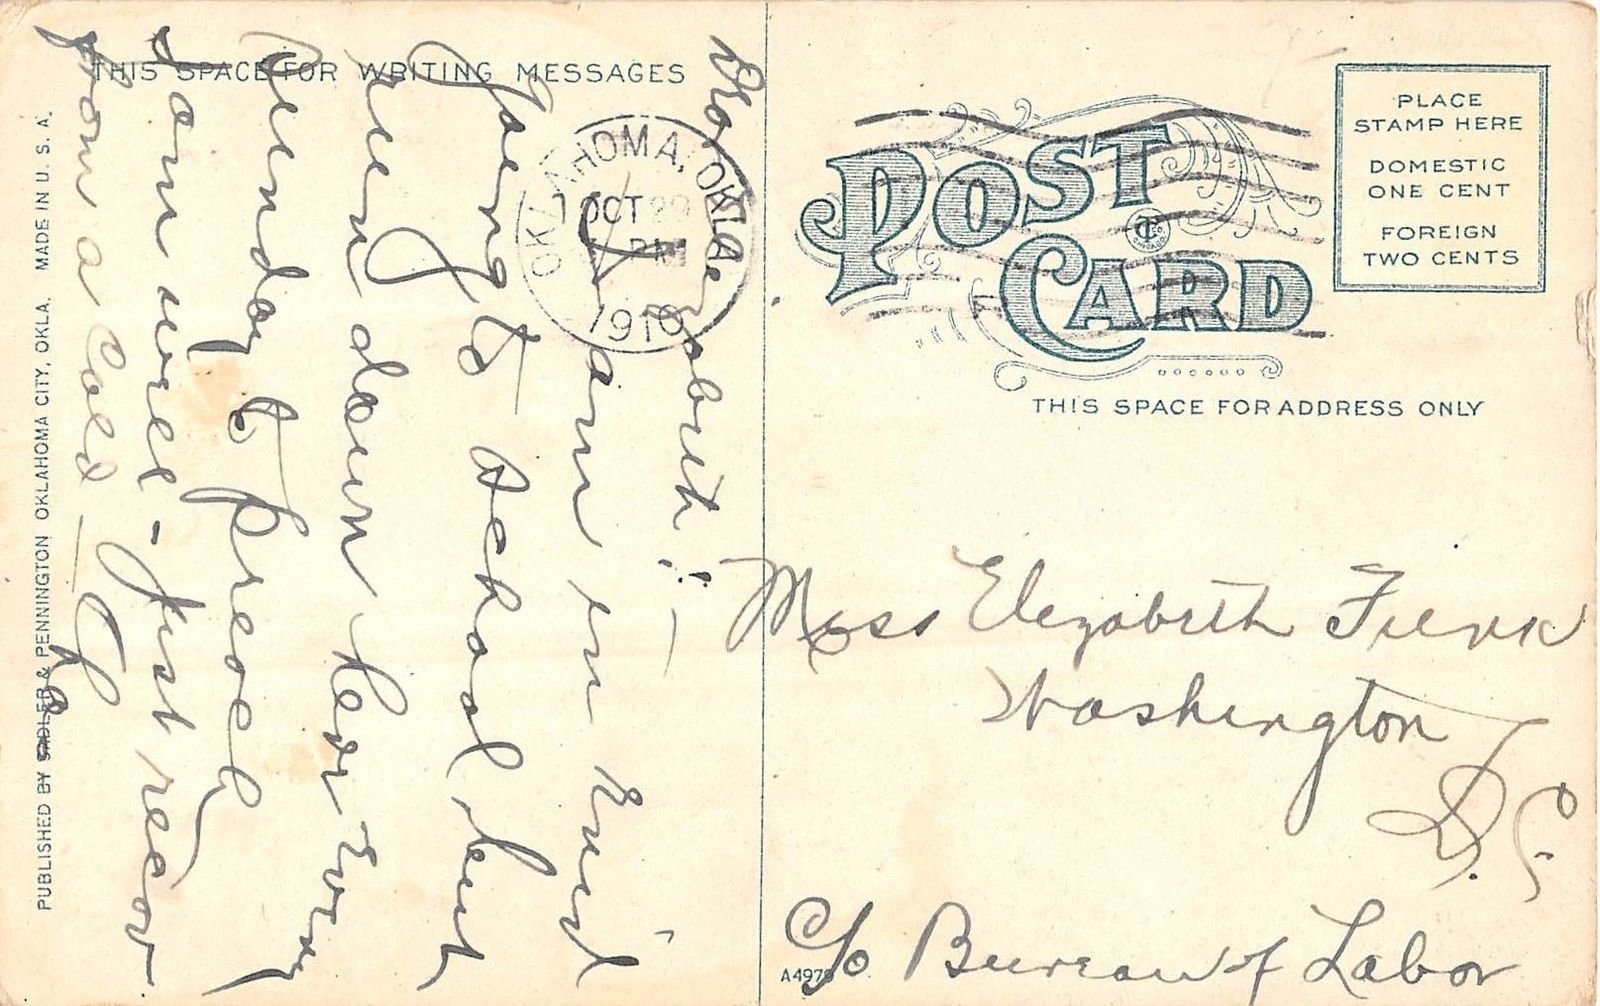 THIS SPACE FOR WRITING MESSAGES
Dear Elizabeth:—
I am in Enid
going to school but
run down here every
Sunday to preach
Am well - Just recov
from a cold
PUBLISHED BY SADLER & PENNINGTON OKLAHOMA CITY, OKLA. MADE IN U. S. A.
OKLAHOMA, OKLA
OCT 29
PM
1910
POST CARD
PLACE
STAMP HERE
DOMESTIC
ONE CENT
FOREIGN
TWO CENTS
THIS SPACE FOR ADDRESS ONLY
Miss Elizabeth
Washington
D. C.
C/o Bureau of Labor